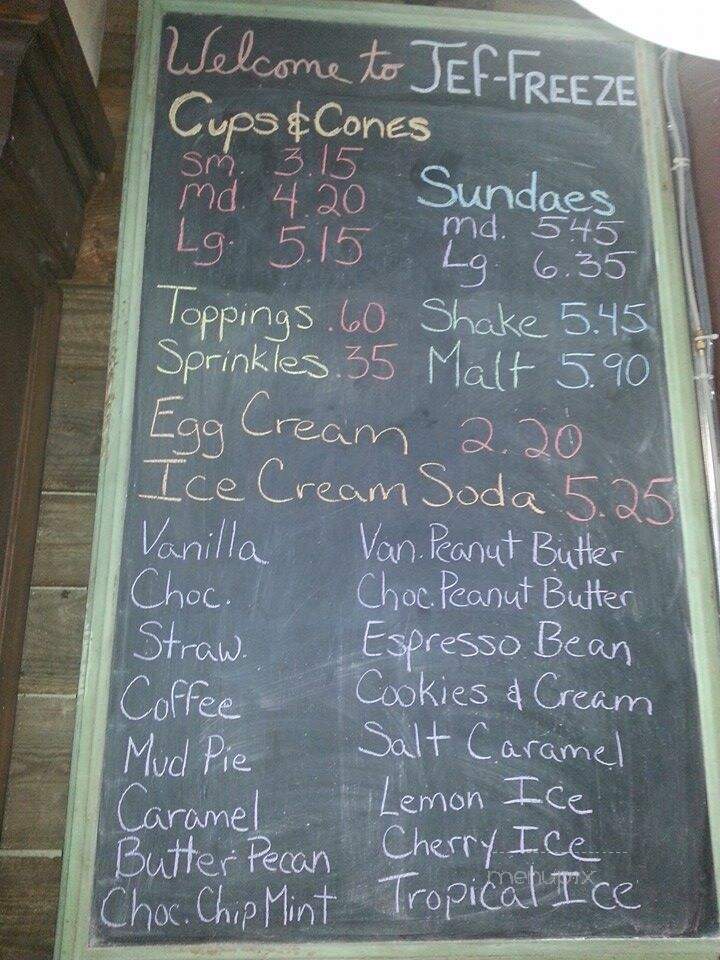 Welcome to JEF-FREEZE
Cups & Cones
Sm. 3.15
Md. 4.20
Lg. 5.15
Sundaes
md. 5.45
Lg 6.35
Toppings .60
Sprinkles .35
Shake 5.45
Malt 5.90
Egg Cream 2.20
Ice Cream Soda 5.25
Vanilla
Choc.
Straw.
Coffee
Mud Pie
Caramel
Butter Pecan
Choc. Chip Mint
Van. Peanut Butter
Choc. Peanut Butter
Espresso Bean
Cookies & Cream
Salt Caramel
Lemon Ice
Cherry Ice
Tropical Ice
menupix